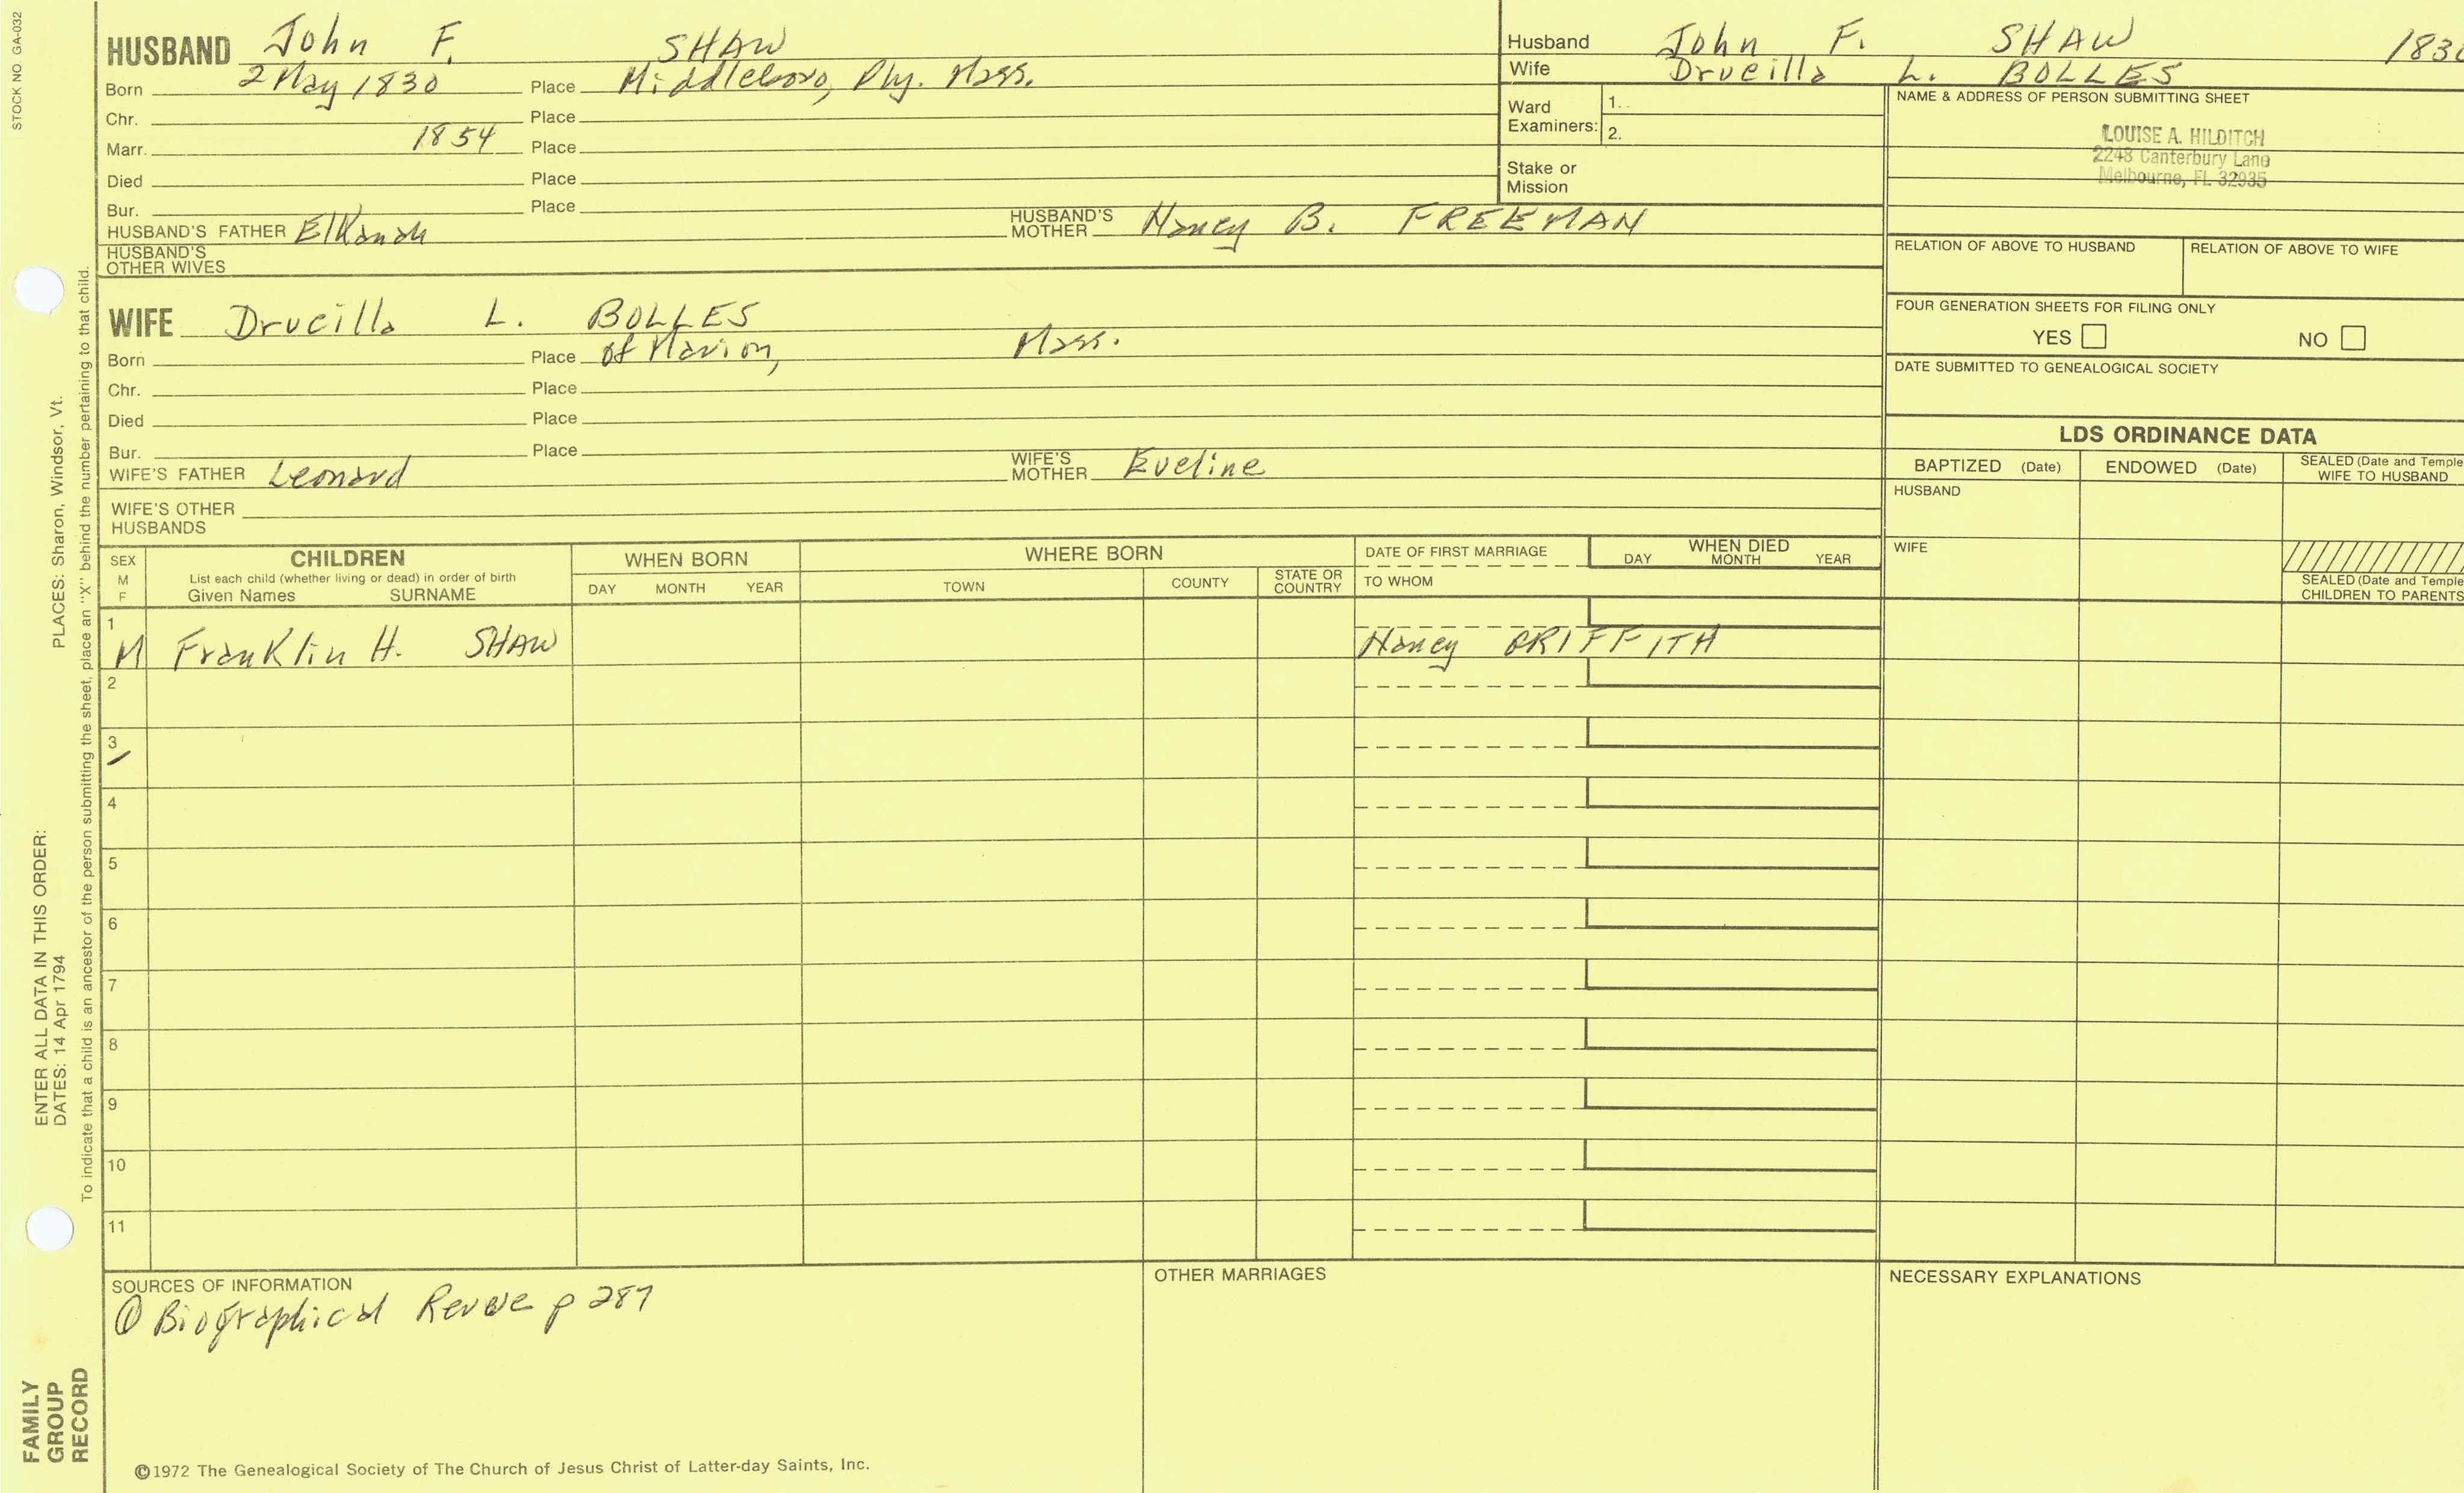 STOCK NO. GA-032
HUSBAND John F. SHAW
Born 2 May 1830 Place Middleboro, Ply. Mass.
Chr. Place
Marr. 1854 Place
Died Place
Bur. Place
HUSBAND'S FATHER Elkanah HUSBAND'S MOTHER Nancy B. FREEMAN
HUSBAND'S OTHER WIVES
WIFE Drucilla L. BOLLES
Born Place of Marion, Mass.
Chr. Place
Died Place
Bur. Place
WIFE'S FATHER Leonard WIFE'S MOTHER Eveline
WIFE'S OTHER HUSBANDS
Husband John F. SHAW 1830
Wife Drucilla L. BOLLES
Ward Examiners: 1. 2.
Stake or Mission
NAME & ADDRESS OF PERSON SUBMITTING SHEET
LOUISE A. HILDITCH
2248 Canterbury Lane
Melbourne, FL 32935
RELATION OF ABOVE TO HUSBAND RELATION OF ABOVE TO WIFE
FOUR GENERATION SHEETS FOR FILING ONLY
YES NO
DATE SUBMITTED TO GENEALOGICAL SOCIETY
LDS ORDINANCE DATA
BAPTIZED (Date) ENDOWED (Date) SEALED (Date and Temple WIFE TO HUSBAND
HUSBAND
WIFE
SEALED (Date and Temple
CHILDREN TO PARENTS
SEX M F
CHILDREN
List each child (whether living or dead) in order of birth
Given Names SURNAME
WHEN BORN
DAY MONTH YEAR
WHERE BORN
TOWN COUNTY STATE OR COUNTRY
DATE OF FIRST MARRIAGE
TO WHOM
WHEN DIED
DAY MONTH YEAR
1
M Franklin H. SHAW Nancy GRIFFITH
2
3
4
5
6
7
8
9
10
11
SOURCES OF INFORMATION
① Biographical p 287
OTHER MARRIAGES
NECESSARY EXPLANATIONS
©1972 The Genealogical Society of The Church of Jesus Christ of Latter-day Saints, Inc.
ENTER ALL DATA IN THIS ORDER:
DATES: 14 Apr 1794
PLACES: Sharon, Windsor, Vt.
To indicate that a child is an ancestor of the person submitting the sheet, place an "X" behind the number pertaining to that child.
FAMILY
GROUP
RECORD